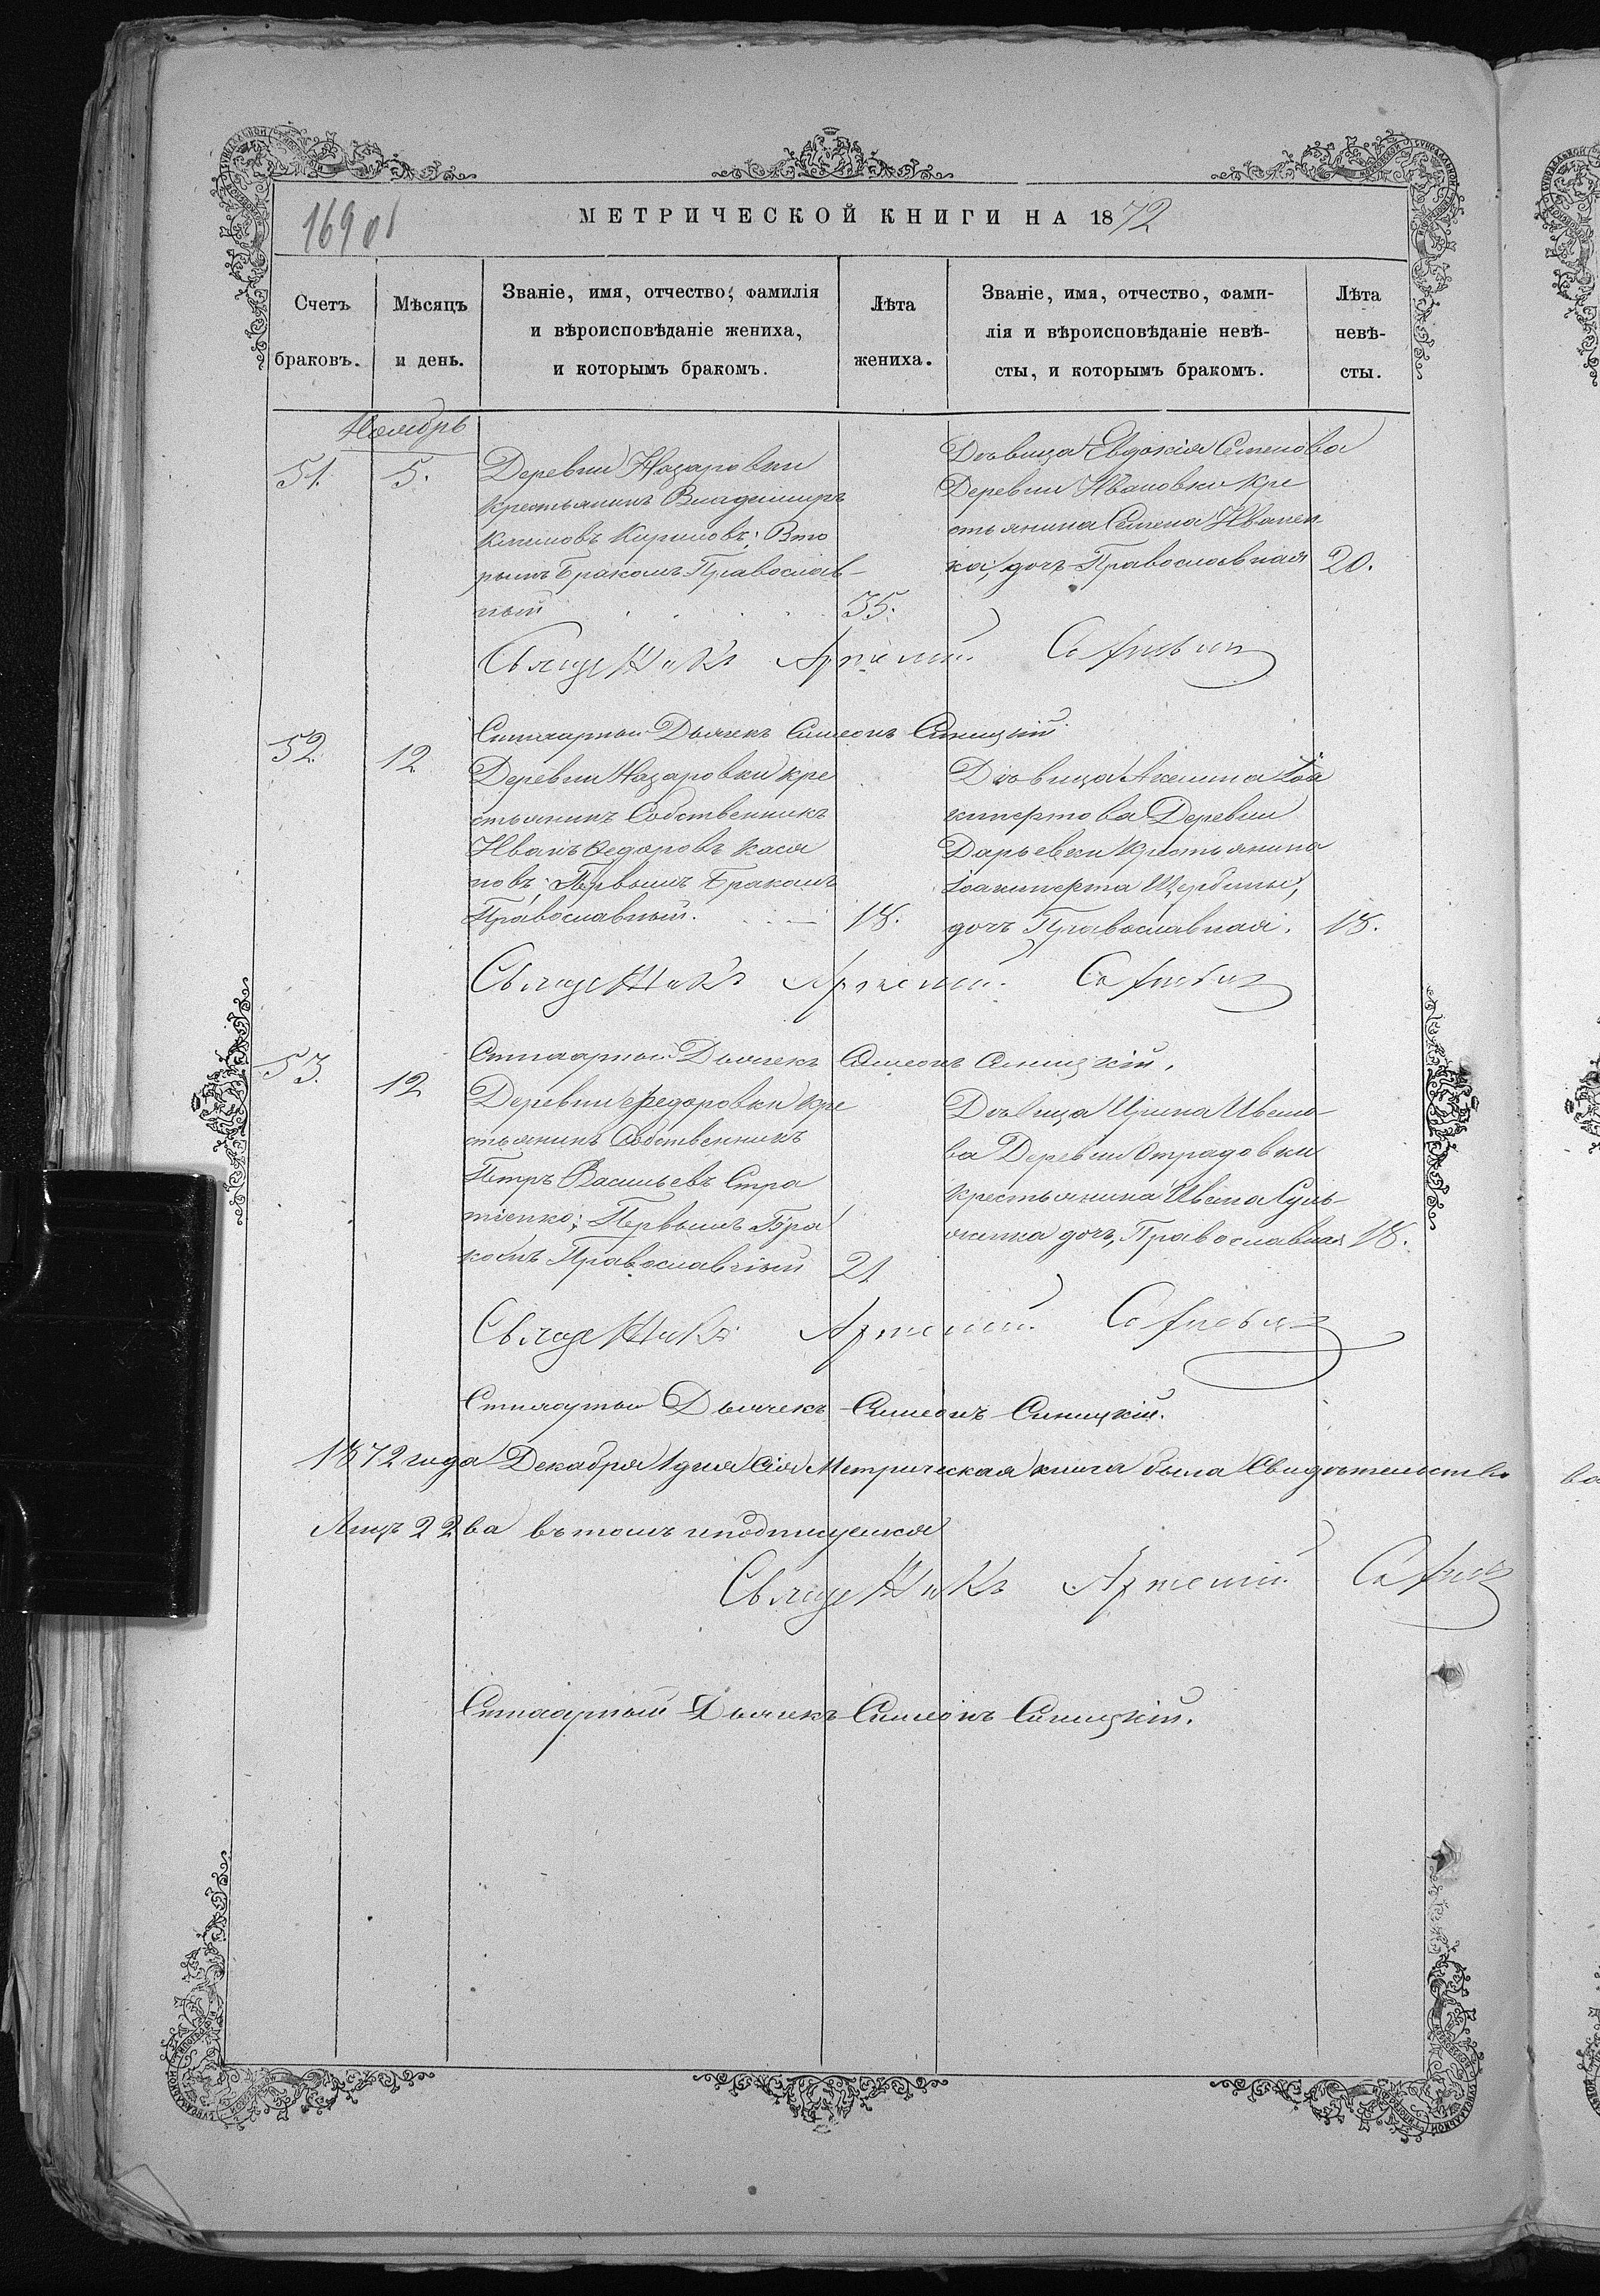 169 об
МЕТРИЧЕСКОЙ КНИГИ НА 1872
Счетъ браковъ.
Мѣсяцъ и день.
Званіе, имя, отчество, фамилія
и вѣроисповѣданіе жениха,
и которымъ бракомъ.
Лѣта жениха.
Званіе, имя, отчество, фами-
лія и вѣроисповѣданіе невѣ-
сты, и которымъ бракомъ.
Лѣта невѣ-
сты.
Ноябрь
51. 5.
Деревни Назаровки
крестьянинъ Владимиръ
Климовъ Кириловъ; Вто
рымъ бракомъ Православ-
ный 35.
Дѣвица Евдокія Семенова
Деревни Ивановки Кре
стьянина Семена Иванен-
ка, дочь Православная 20.
Священникъ Артемій
Стихарный Дьячекъ Симеонъ Синицкій
52. 12
Деревни Назаровки кре
стьянинъ Собственникъ
Иванъ Федоровъ Кася
новъ; Первымъ бракомъ
Православный. 18.
Дѣвица Акилина Іоа
Деревни
Дарьевки Крестьянина
Щербины,
дочь Православная. 18.
Священникъ Артемій
Стихарный Дьячекъ Симеонъ Синицкій.
53. 12
Деревни Федоровки Кре
стьянинъ Собственникъ
Петръ Васильевъ Стра
тіенко; Первымъ Бра
комъ Православный 21
Дѣвица Ирина Ивано-
ва Деревни Отрадовки
Крестьянина Ивана
дочь, Православная 18.
Священникъ Артемій
Стихарный Дьячекъ Симеонъ Синицкій.
1872 года Декабря 1 дня Сія Метрическая книга была Свидѣтельство
ва въ томъ и подпишемся
Священникъ Артемій
Стихарный Дьячекъ Симеонъ Синицкій.